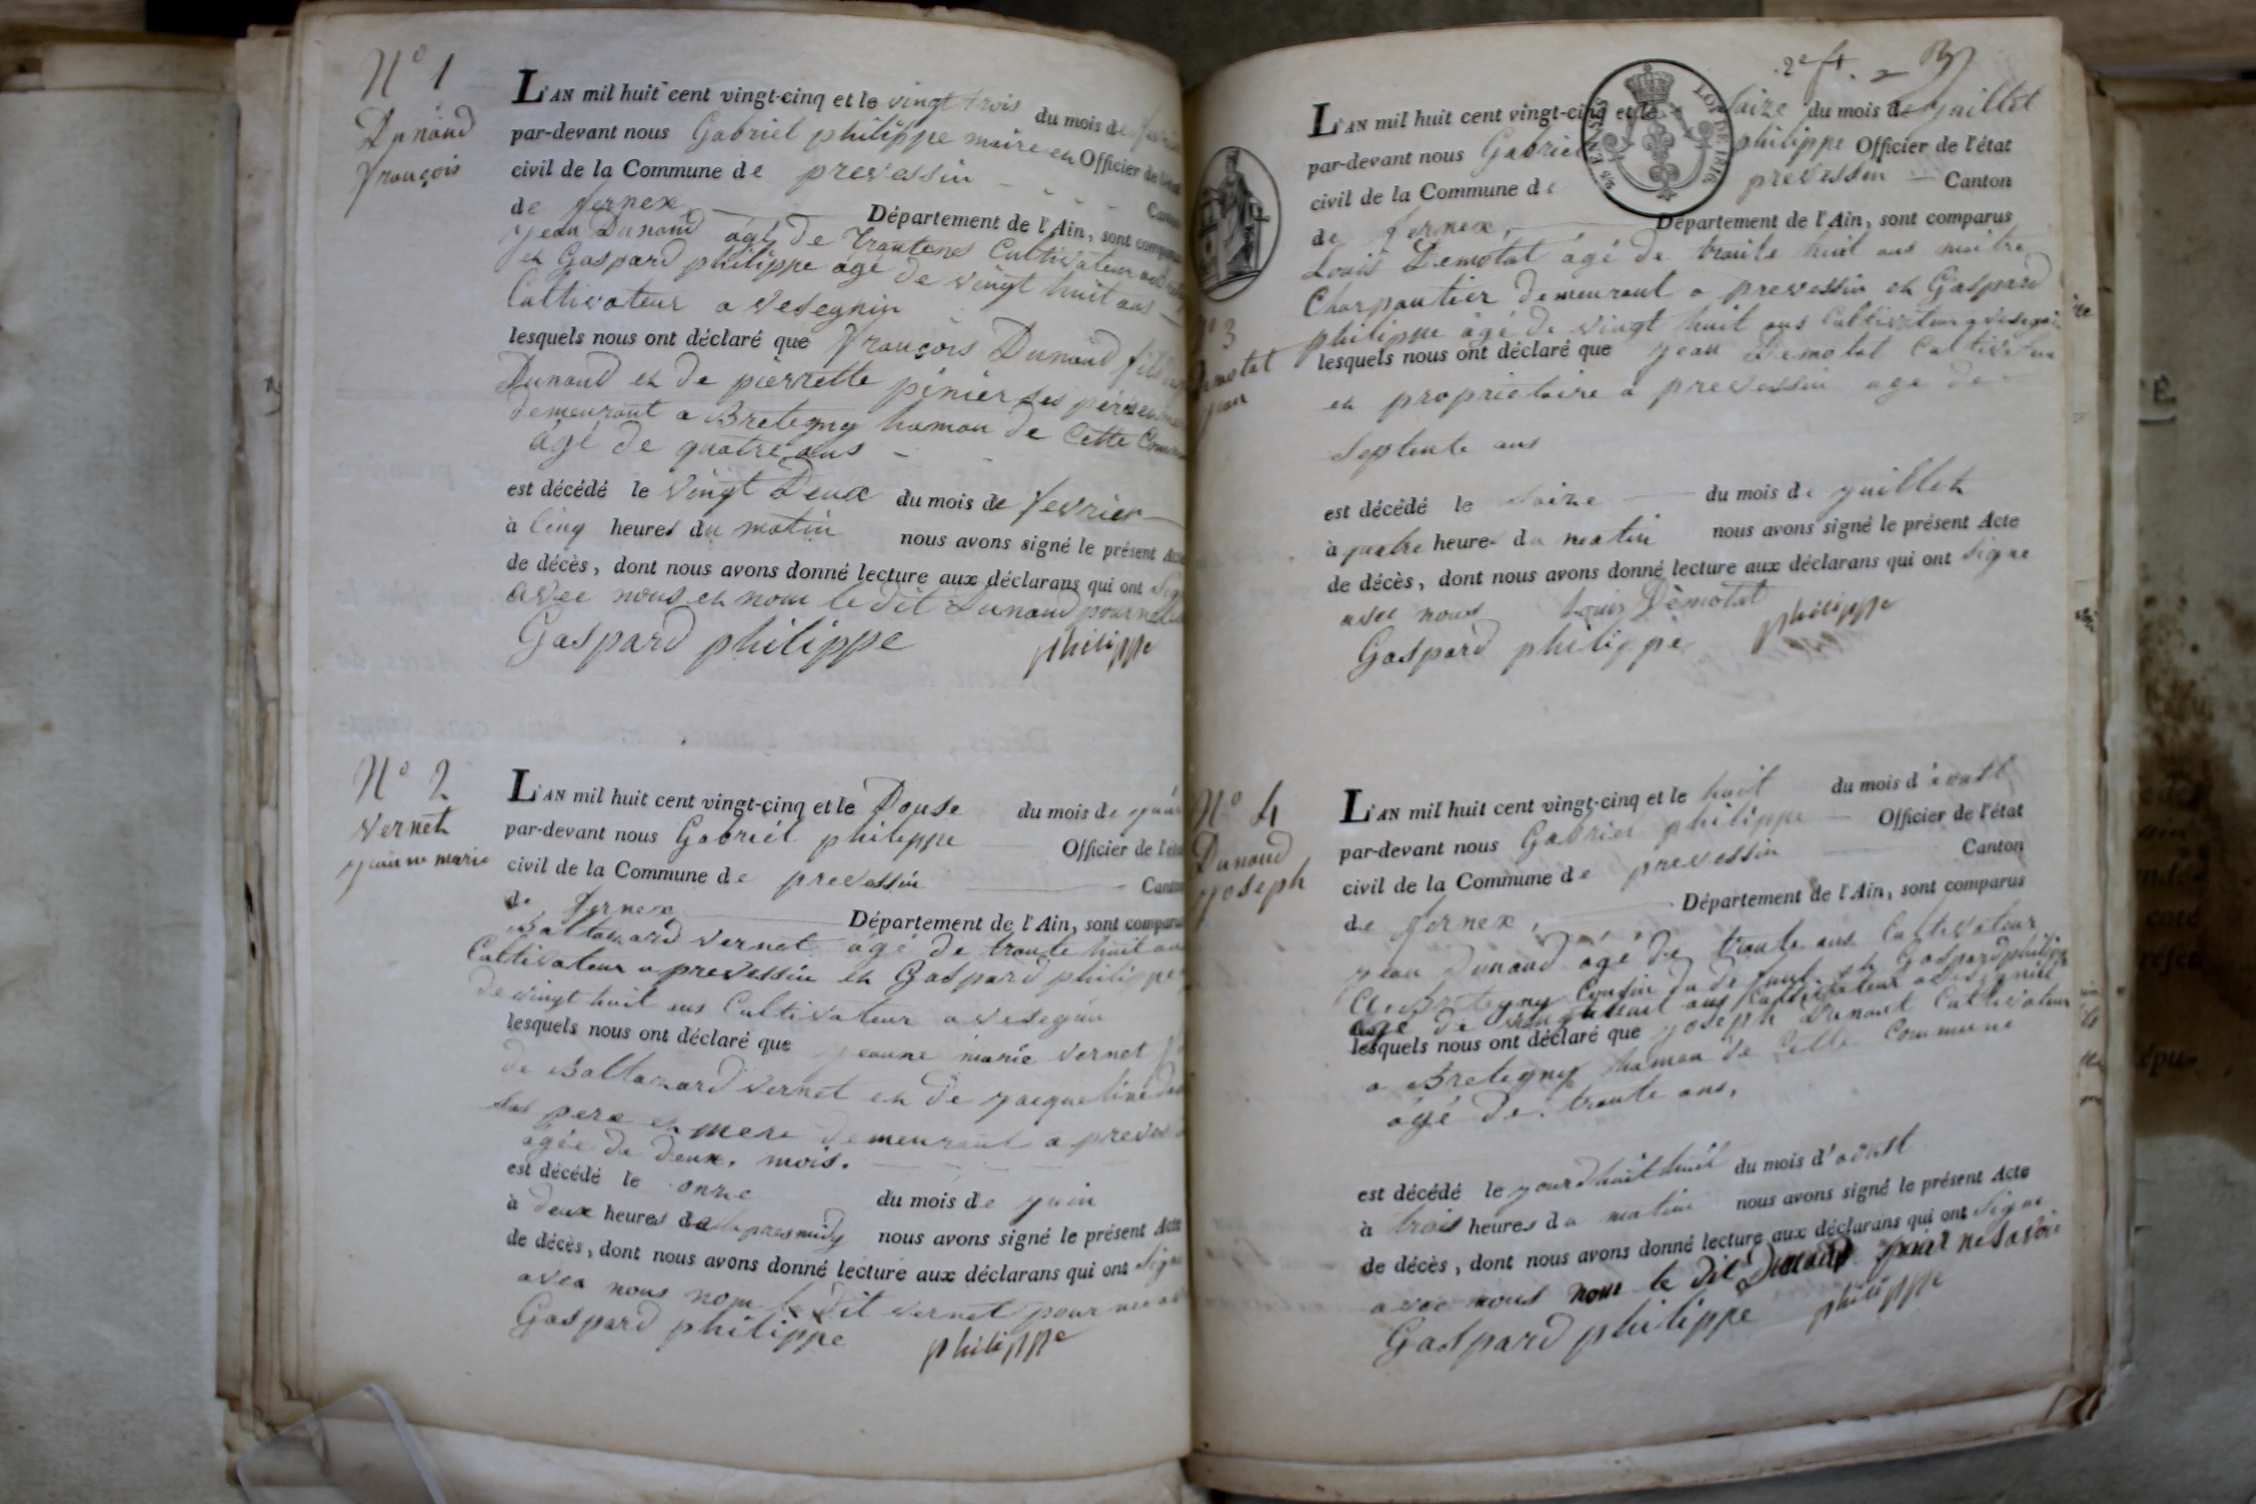 N° 1
Dunand
françois
L'AN mil huit cent vingt-cinq et le vingt trois du mois de
par-devant nous Gabriel philippe maire en Officier de l'état
civil de la Commune de prevessin
de fernex. Département de l'Ain, sont
jean Dunand âgé de trantens Cultivateur
en Gaspard philippe âgé de vingt huit ans
Cultivateur a vesegnin
lesquels nous ont déclaré que françois Dunand fils
Dunand en de pierrette pinier ses
demeurant a Bretegny hamau de Cette
âgé de quatre ans
est décédé le vingt Deux du mois de fevrier
à Cinq heures du matin nous avons signé le présent Acte
de décès, dont nous avons donné lecture aux déclarans qui ont
avec nous en nom le dit Dunand pour
Gaspard philippe philippe
N° 2
Vernet
marie
L'AN mil huit cent vingt-cinq et le Douse du mois de
par-devant nous Gabriel philippe Officier de l'état
civil de la Commune de prevessin Canton
de fernex Département de l'Ain, sont
Baltazard vernet âgé de trante huit
Cultivateur a prevessin en Gaspard philippe
de vingt huit ans Cultivateur a vesegnin
lesquels nous ont déclaré que jeanne marie vernet
de Baltazard vernet en de jacqueline
ses pere en mere demeurant a
âgée de deux mois.
est décédé le onze du mois de juin
à deux heures nous avons signé le présent Acte
de décès, dont nous avons donné lecture aux déclarans qui ont
avec nous nom le dit vernet pour
Gaspard philippe philippe
2e
L'AN mil huit cent vingt-cinq et le saize du mois de juillet
par-devant nous Gabriel philippe Officier de l'état
civil de la Commune de prevessin Canton
de fernex, Département de l'Ain, sont comparus
Louis Demotat âgé de trante huit ans maitre
Charpantier demeurant a prevessin en Gaspard
philippe âgé de vingt huit ans Cultivateur
3
lesquels nous ont déclaré que jean Demotat Cultivateur
en proprietaire a prevessin age de
septente ans
est décédé le saize du mois de juillet
à quatre heures du matin nous avons signé le présent Acte
de décès, dont nous avons donné lecture aux déclarans qui ont signe
avec nous Louis Démotat philippe
Gaspard philippe
N° 4
Dunand
joseph
L'AN mil huit cent vingt-cinq et le huit du mois d'aoust
par-devant nous Gabriel philippe Officier de l'état
civil de la Commune de prevessin Canton
de fernex, Département de l'Ain, sont comparus
jean Dunand âgé de trante ans Cultivateur
a Bretegny Cousin du defunt en Gaspard philippe
âgé de ans Cultivateur
lesquels nous ont déclaré que joseph Dunand Cultivateur
a Bretegny hamau de Cette Commune
âgé de trante ans,
est décédé le huit du mois d'aoust
à trois heures du matin nous avons signé le présent Acte
de décès, dont nous avons donné lecture aux déclarans qui ont signe
avec nous nom le dit Dunand pour ne savoir
Gaspard philippe philippe